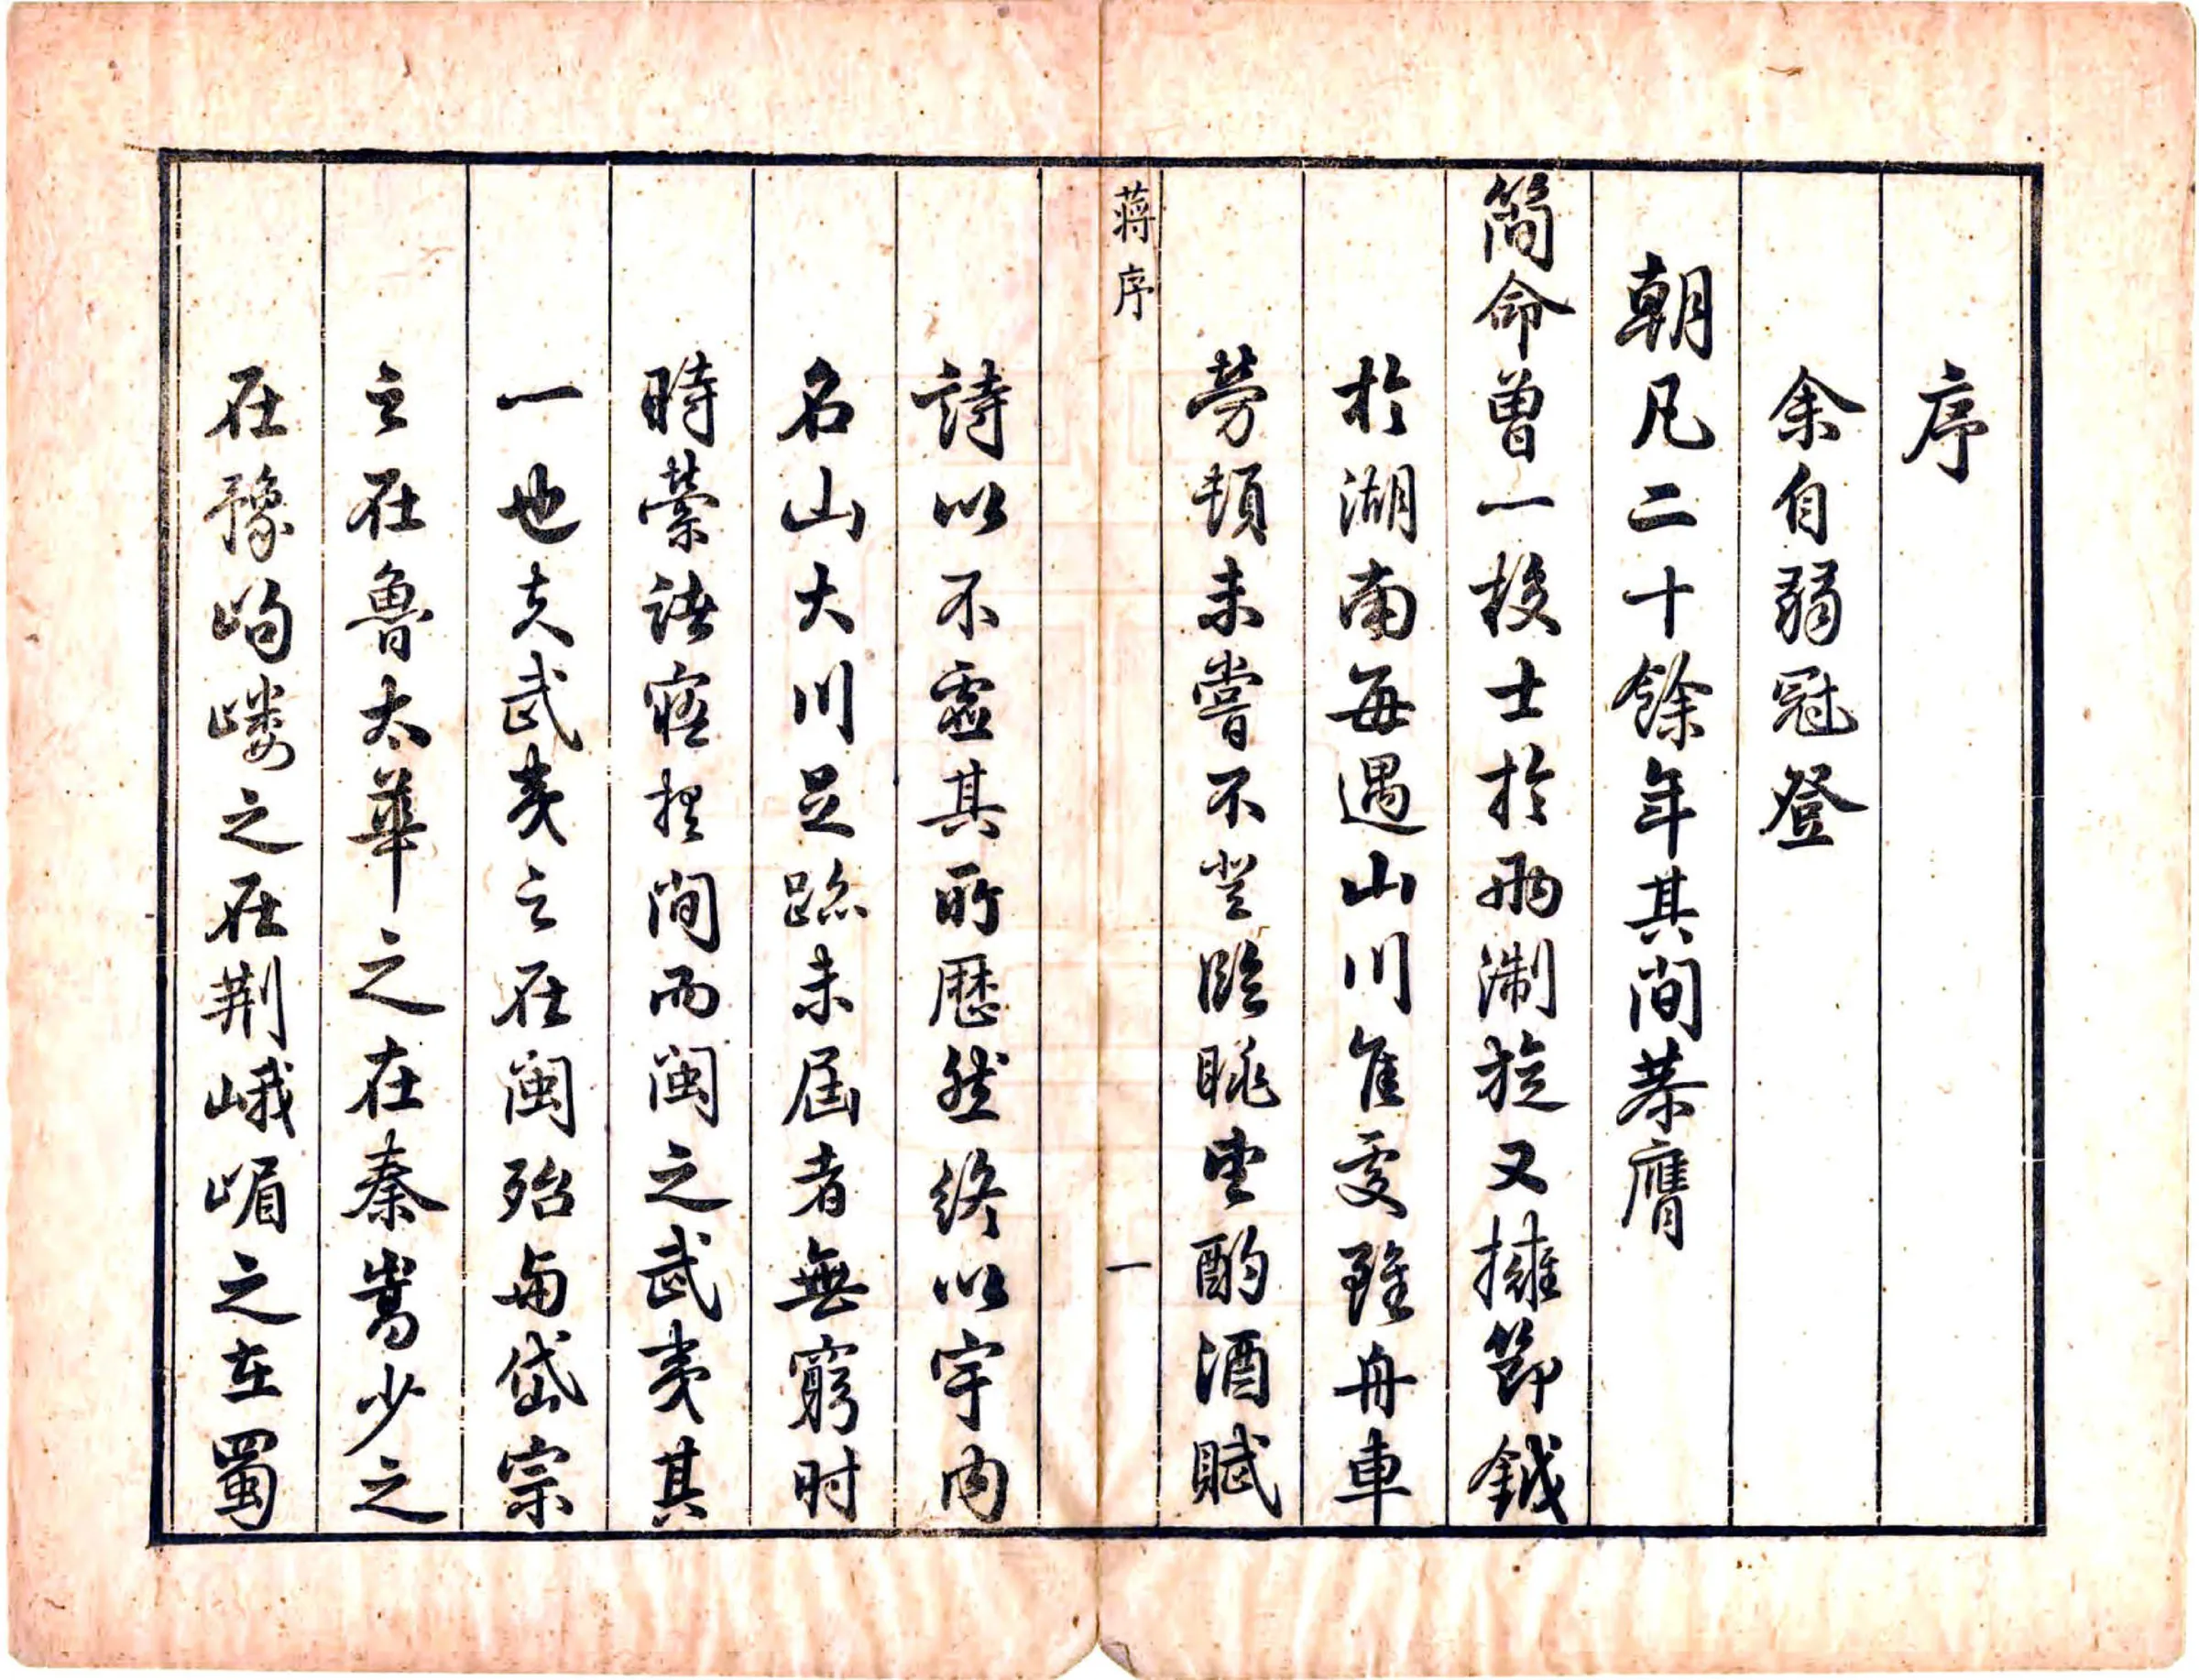 序
余自弱冠登
朝凡二十餘年其間恭膺
簡命曽一挍士於兩淛旋又擁節鉞
於湖南每遇山川隹䖏雖舟車
勞頓未嘗不登臨眺望酌酒賦
蒋序
一
詩以不虛其所歷然終以宇内
名山大川足跡未届者無窮时
時縈諸寤寐間而閩之武夷其
一也夫武夷之在閩殆与岱宗
之在魯太華之在秦嵩少之
在豫岣嶁之在荆峨嵋之在蜀